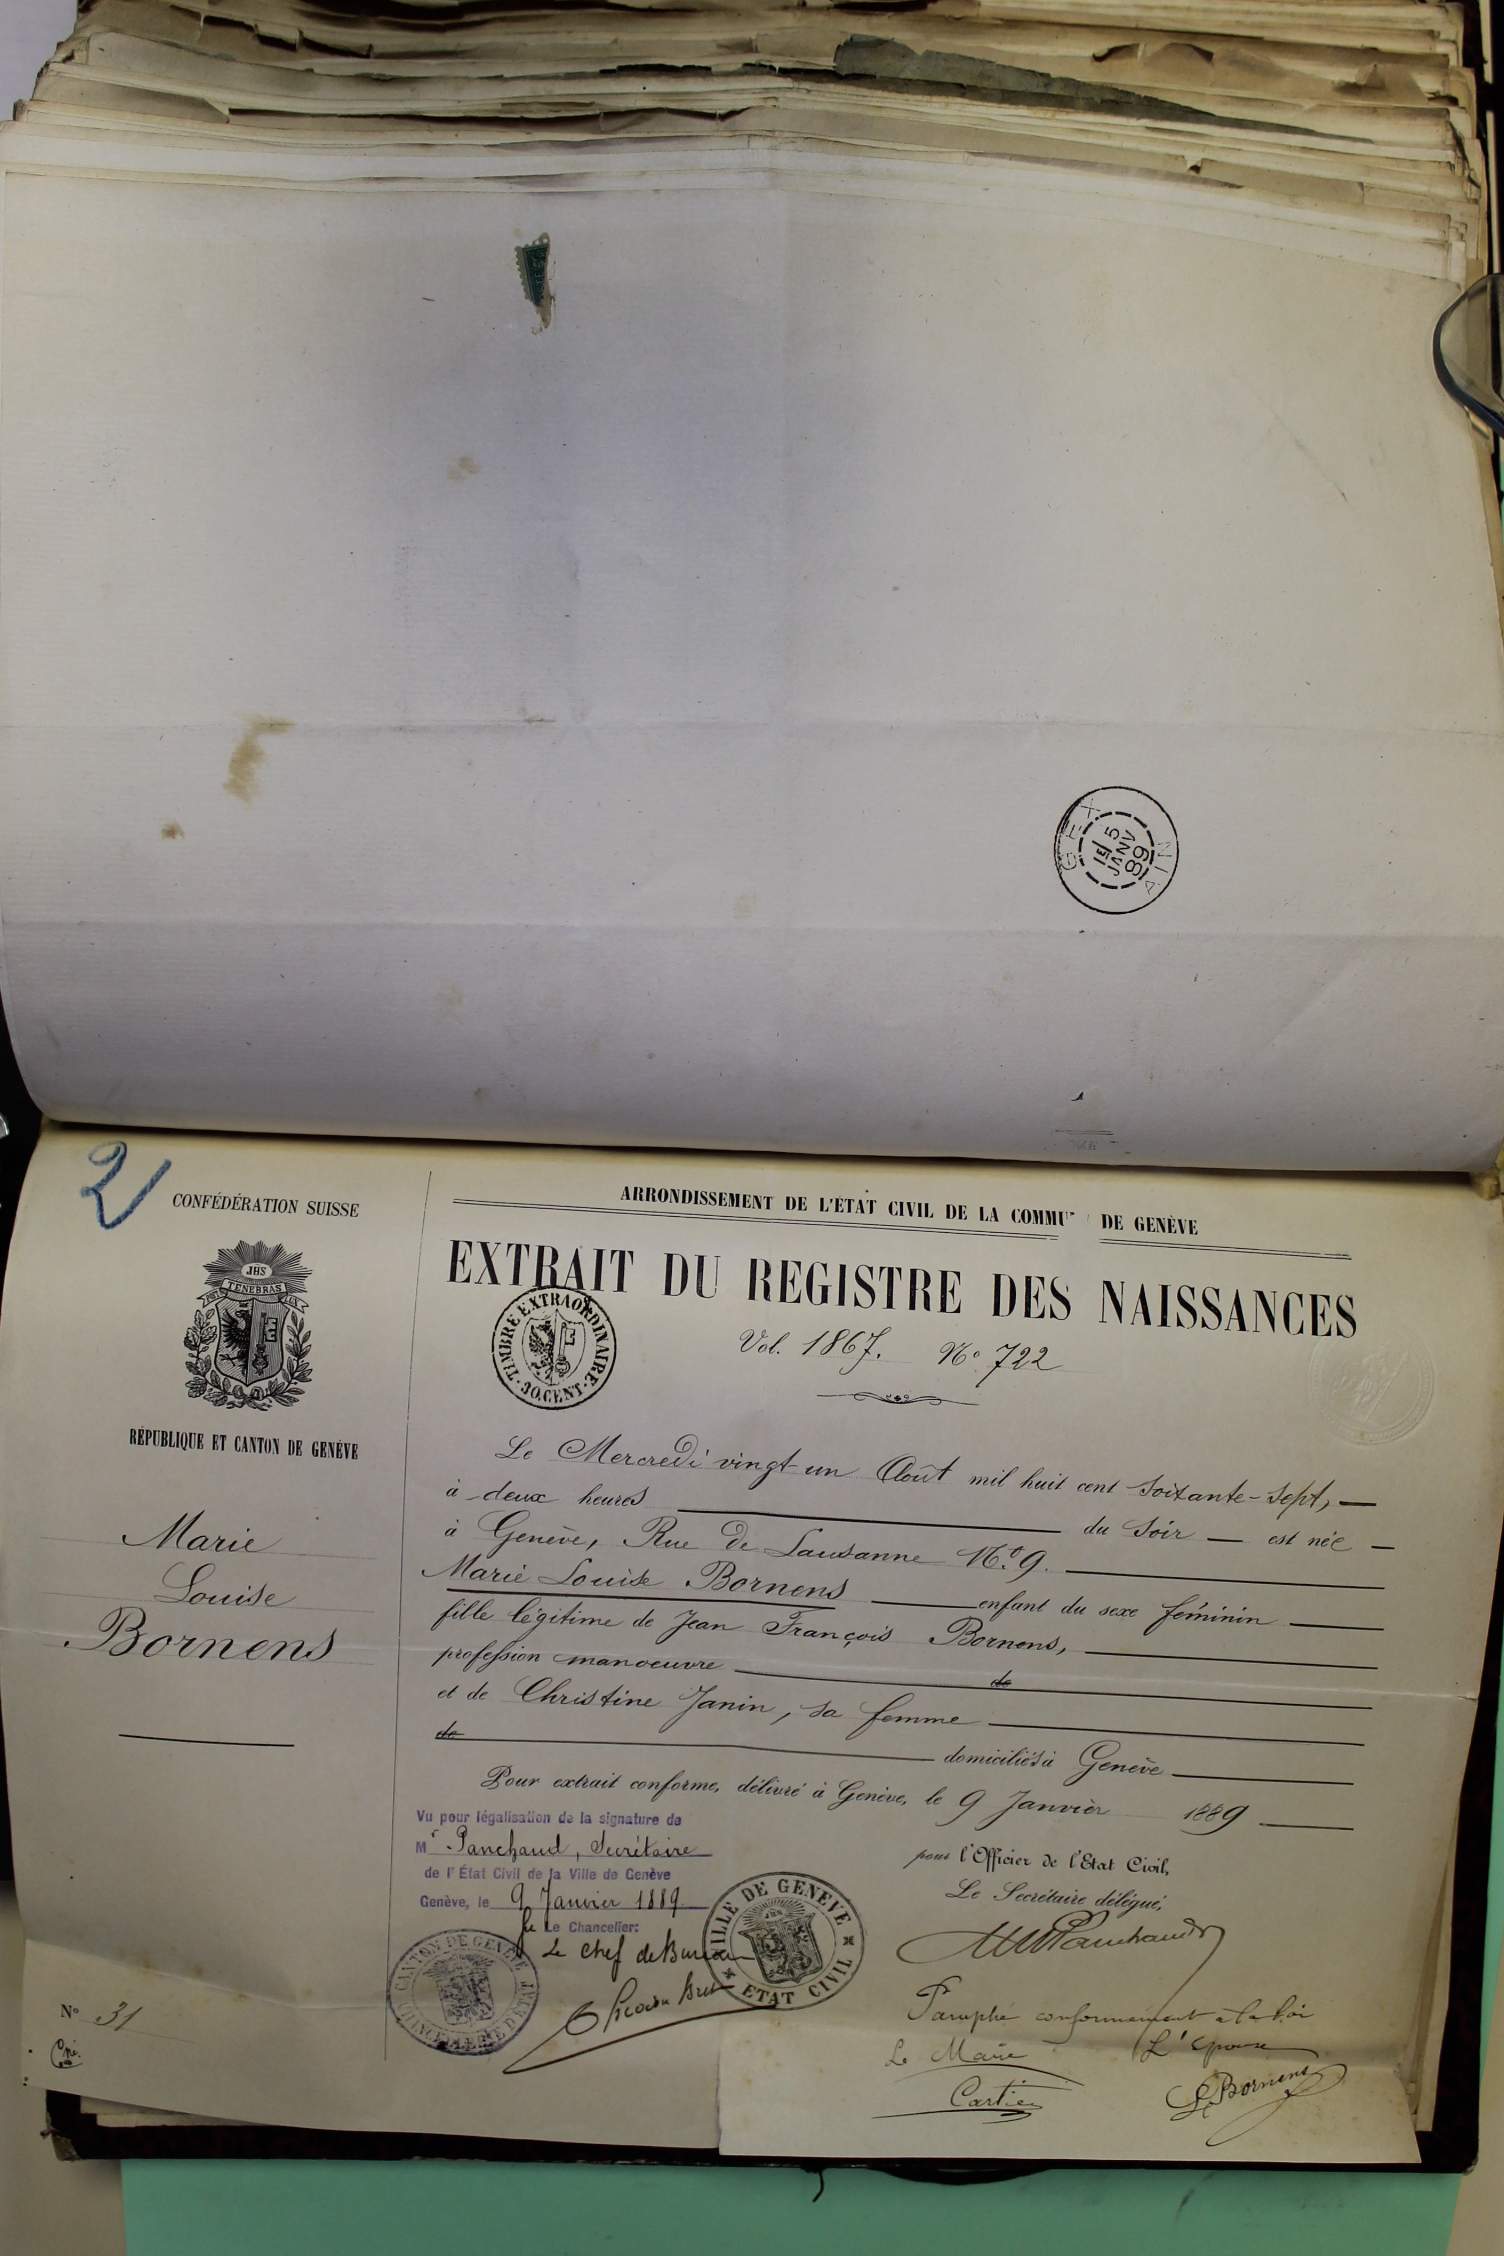 GEX
1E
5
JANV
89
AIN
2
CONFÉDÉRATION SUISSE
JHS
POST TENEBRAS LUX
RÉPUBLIQUE ET CANTON DE GENÈVE
Marie
Louise
Bornens
N° 31
ARRONDISSEMENT DE L'ÉTAT CIVIL DE LA COMMU DE GENÈVE
EXTRAIT DU REGISTRE DES NAISSANCES
TIMBRE EXTRAORDINAIRE
30 CENT.
Vol. 1867. N° 722
Le Mercredi vingt-un Août mil huit cent soixante-sept,
à deux heures du soir est née
à Genève, Rue de Lausanne N° 9.
Marie Louise Bornens enfant du sexe féminin
fille légitime de Jean François Bornens,
profession manoeuvre de
et de Christine Janin, sa femme
de domiciliés à Genève
Pour extrait conforme, délivré à Genève, le 9 Janvier 1889
Vu pour légalisation de la signature de
Mr Panchaud, Secrétaire
de l'État Civil de la Ville de Genève
Genève, le 9 Janvier 1889
Le Chancelier:
Le Chef de Bureau
CANTON DE GENÈVE
CHANCELLERIE D'ÉTAT
VILLE DE GENÈVE
ETAT CIVIL
pour l'Officier de l'Etat Civil,
Le Secrétaire délégué,
Panchaud
Paraphé conformément à la loi
Le Maire L'Epouse
Cartier L Bornens